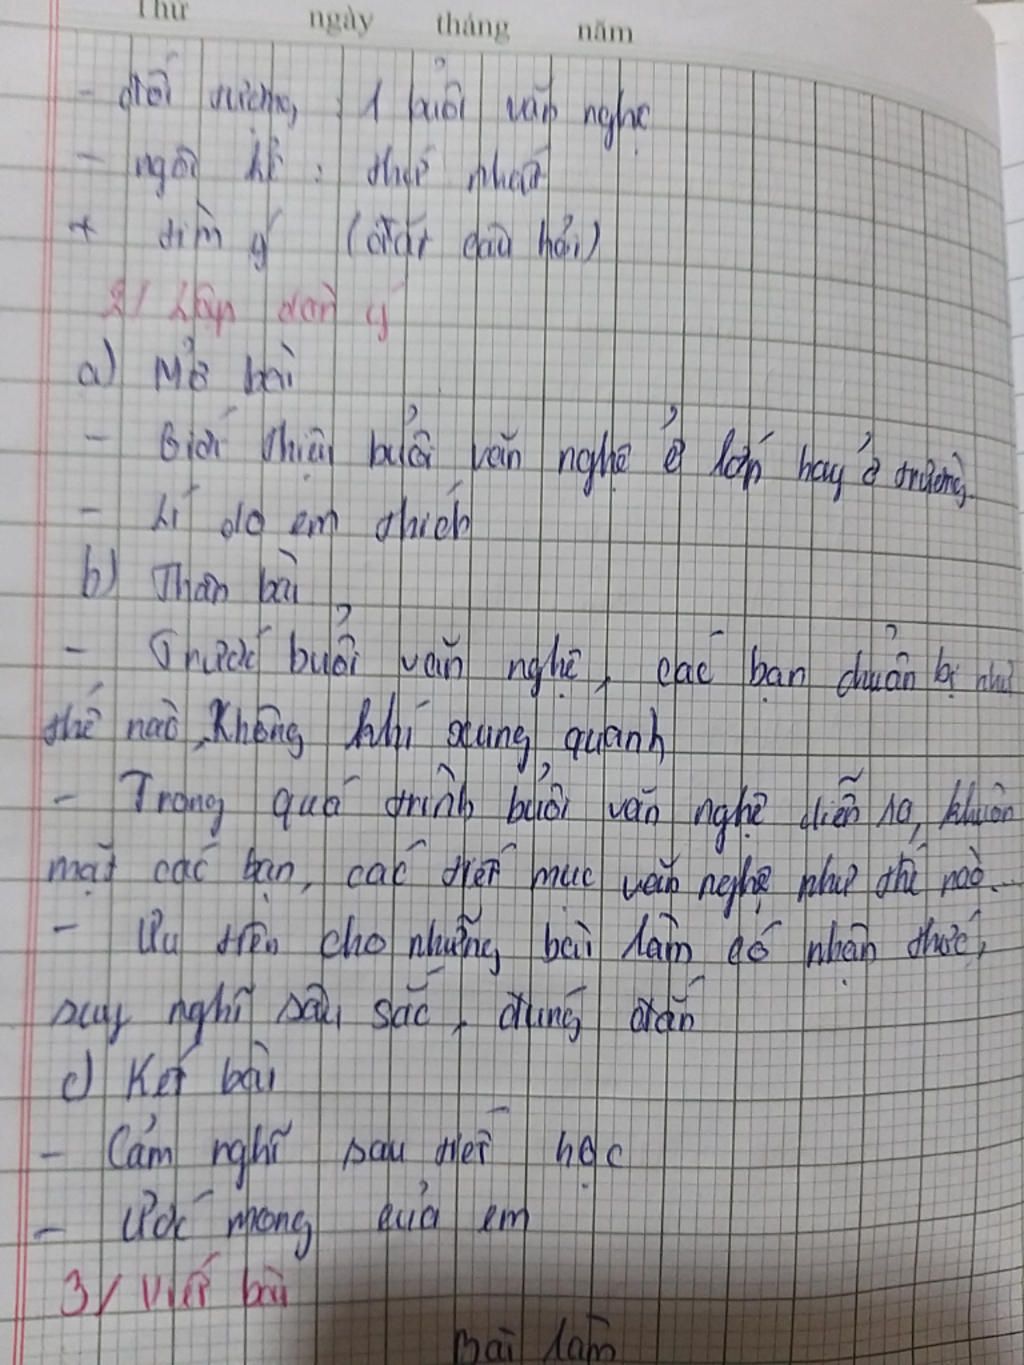 Thứ ngày tháng năm
- đối tượng, 1 buổi văn nghệ
- ngôi kể : thứ nhất
+ tìm ý (đặt câu hỏi)
2/ Lập dàn ý
a) Mở bài
- Giới thiệu buổi văn nghệ ở lớp hay ở trường
- Lí do em thích
b) Thân bài
- Trước buổi văn nghệ, các bạn chuẩn bị như
thế nào, Không khí xung quanh
- Trong quá trình buổi văn nghệ diễn ra, khuôn
mặt các bạn, các tiết mục văn nghệ như thế nào...
- Ưu tiên cho những bài làm có nhận thức,
suy nghĩ sâu sắc, đúng đắn
c) Kết bài
- Cảm nghĩ sau tiết học
- Ước mong của em
3/ Viết bài
Bài làm